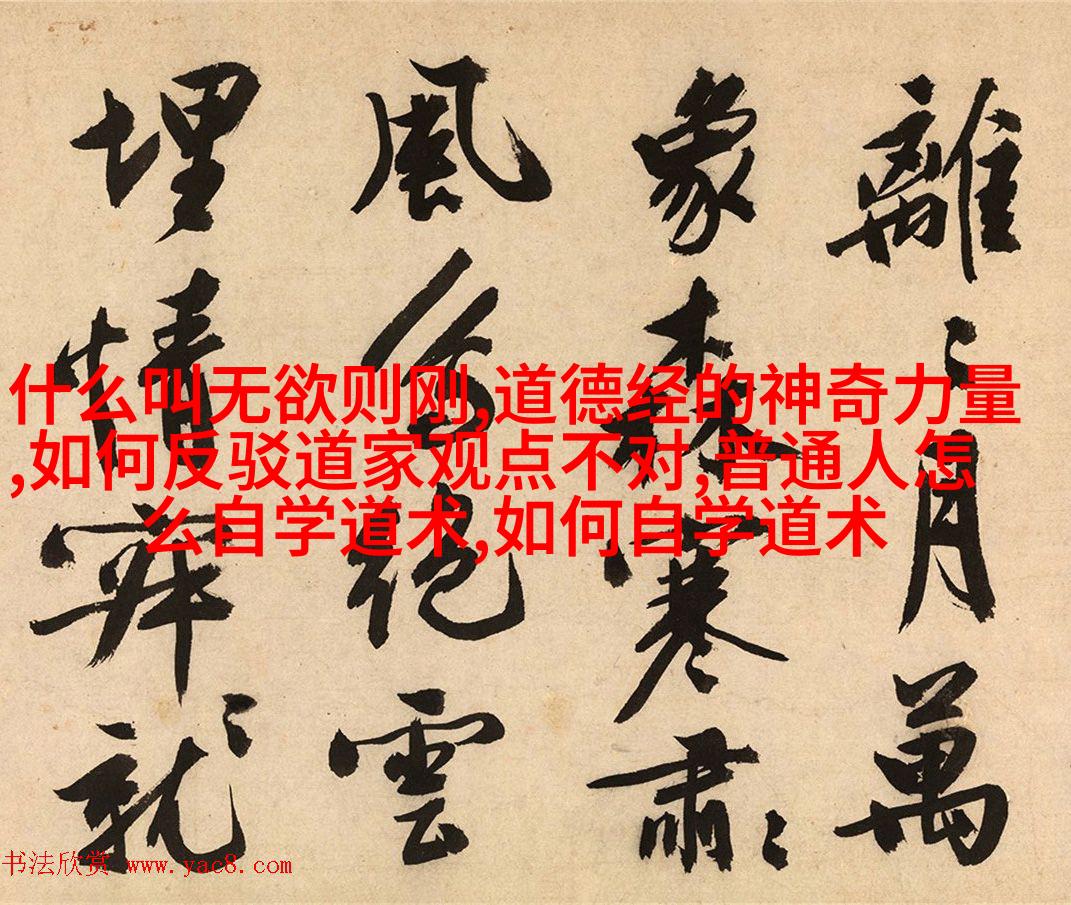 離〻月萬
象森寒肅〻
風𠆢绝雲
埋情穽就〻
什么叫无欲则刚,道德经的神奇力量
,如何反驳道家观点不对,普通人怎
么自学道术,如何自学道术
书法欣赏 www.yac8.com